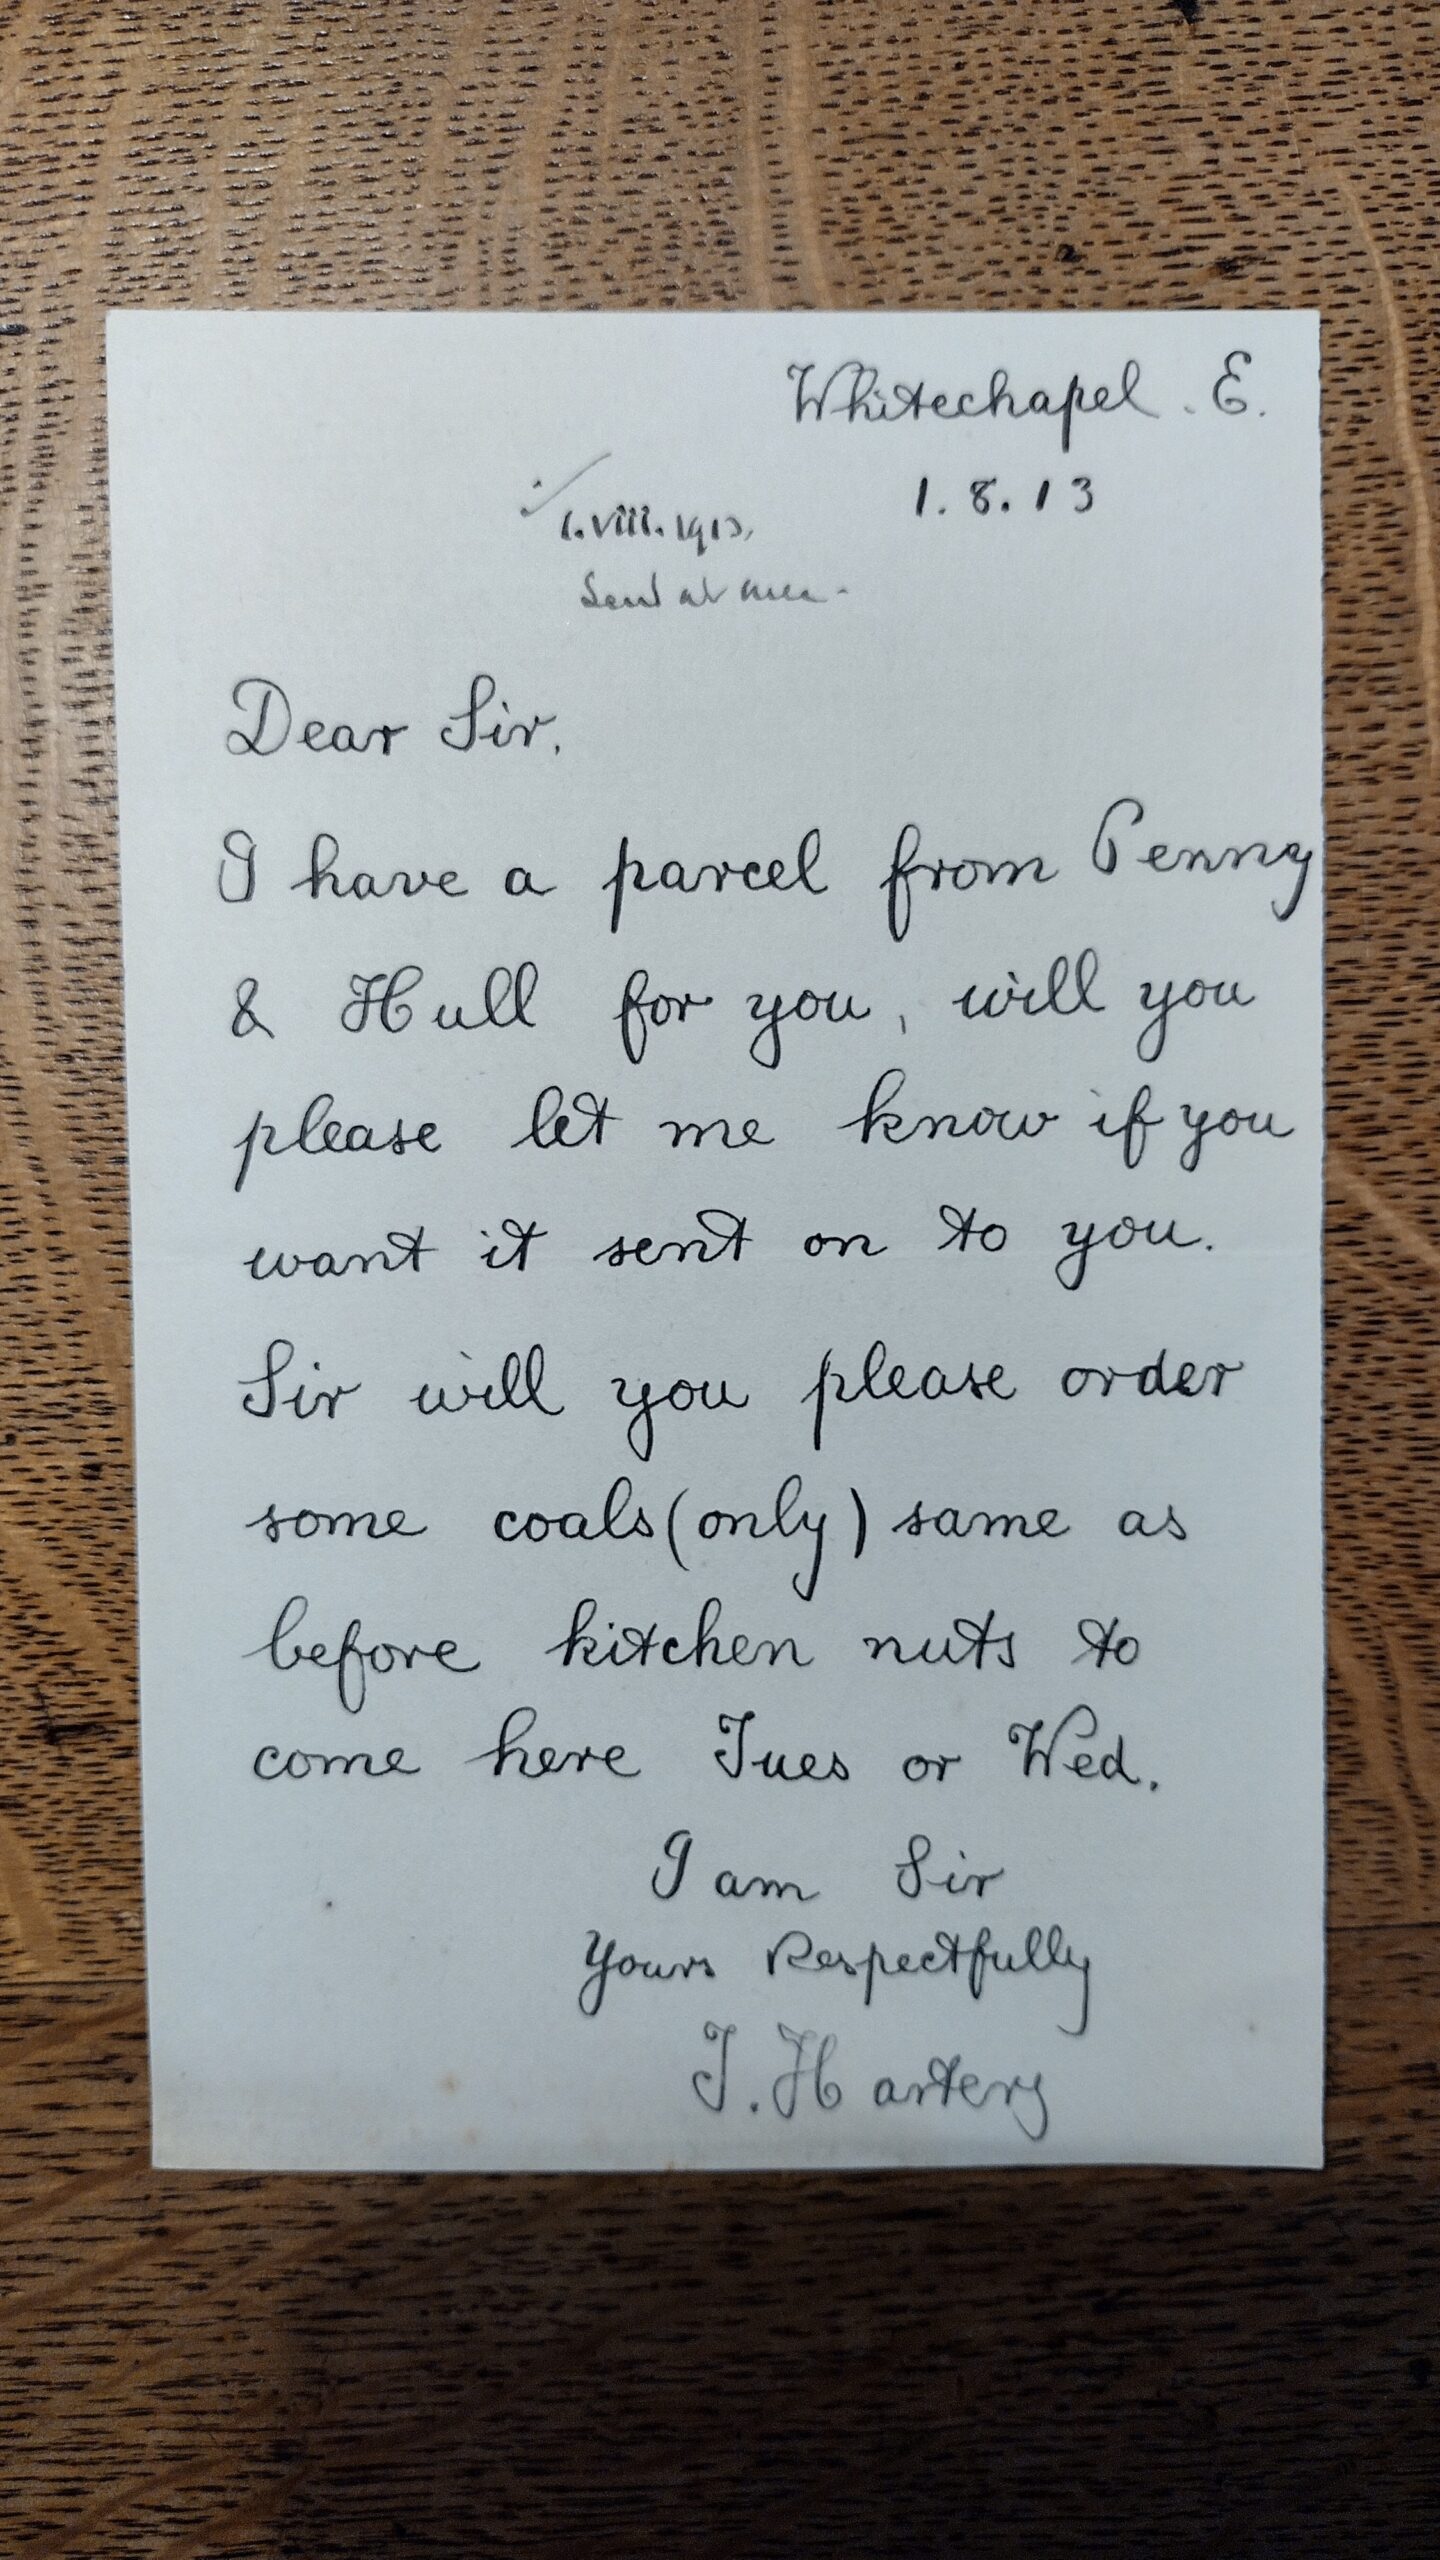 Whitechapel. E.
1. 8. 13
1.viii.1913.
Send at once.
Dear Sir,
I have a parcel from Penny
& Hull for you, will you
please let me know if you
want it sent on to you.
Sir will you please order
some coals (only) same as
before kitchen nuts to
come here Tues or Wed.
I am Sir
Yours Respectfully
J. Hartery